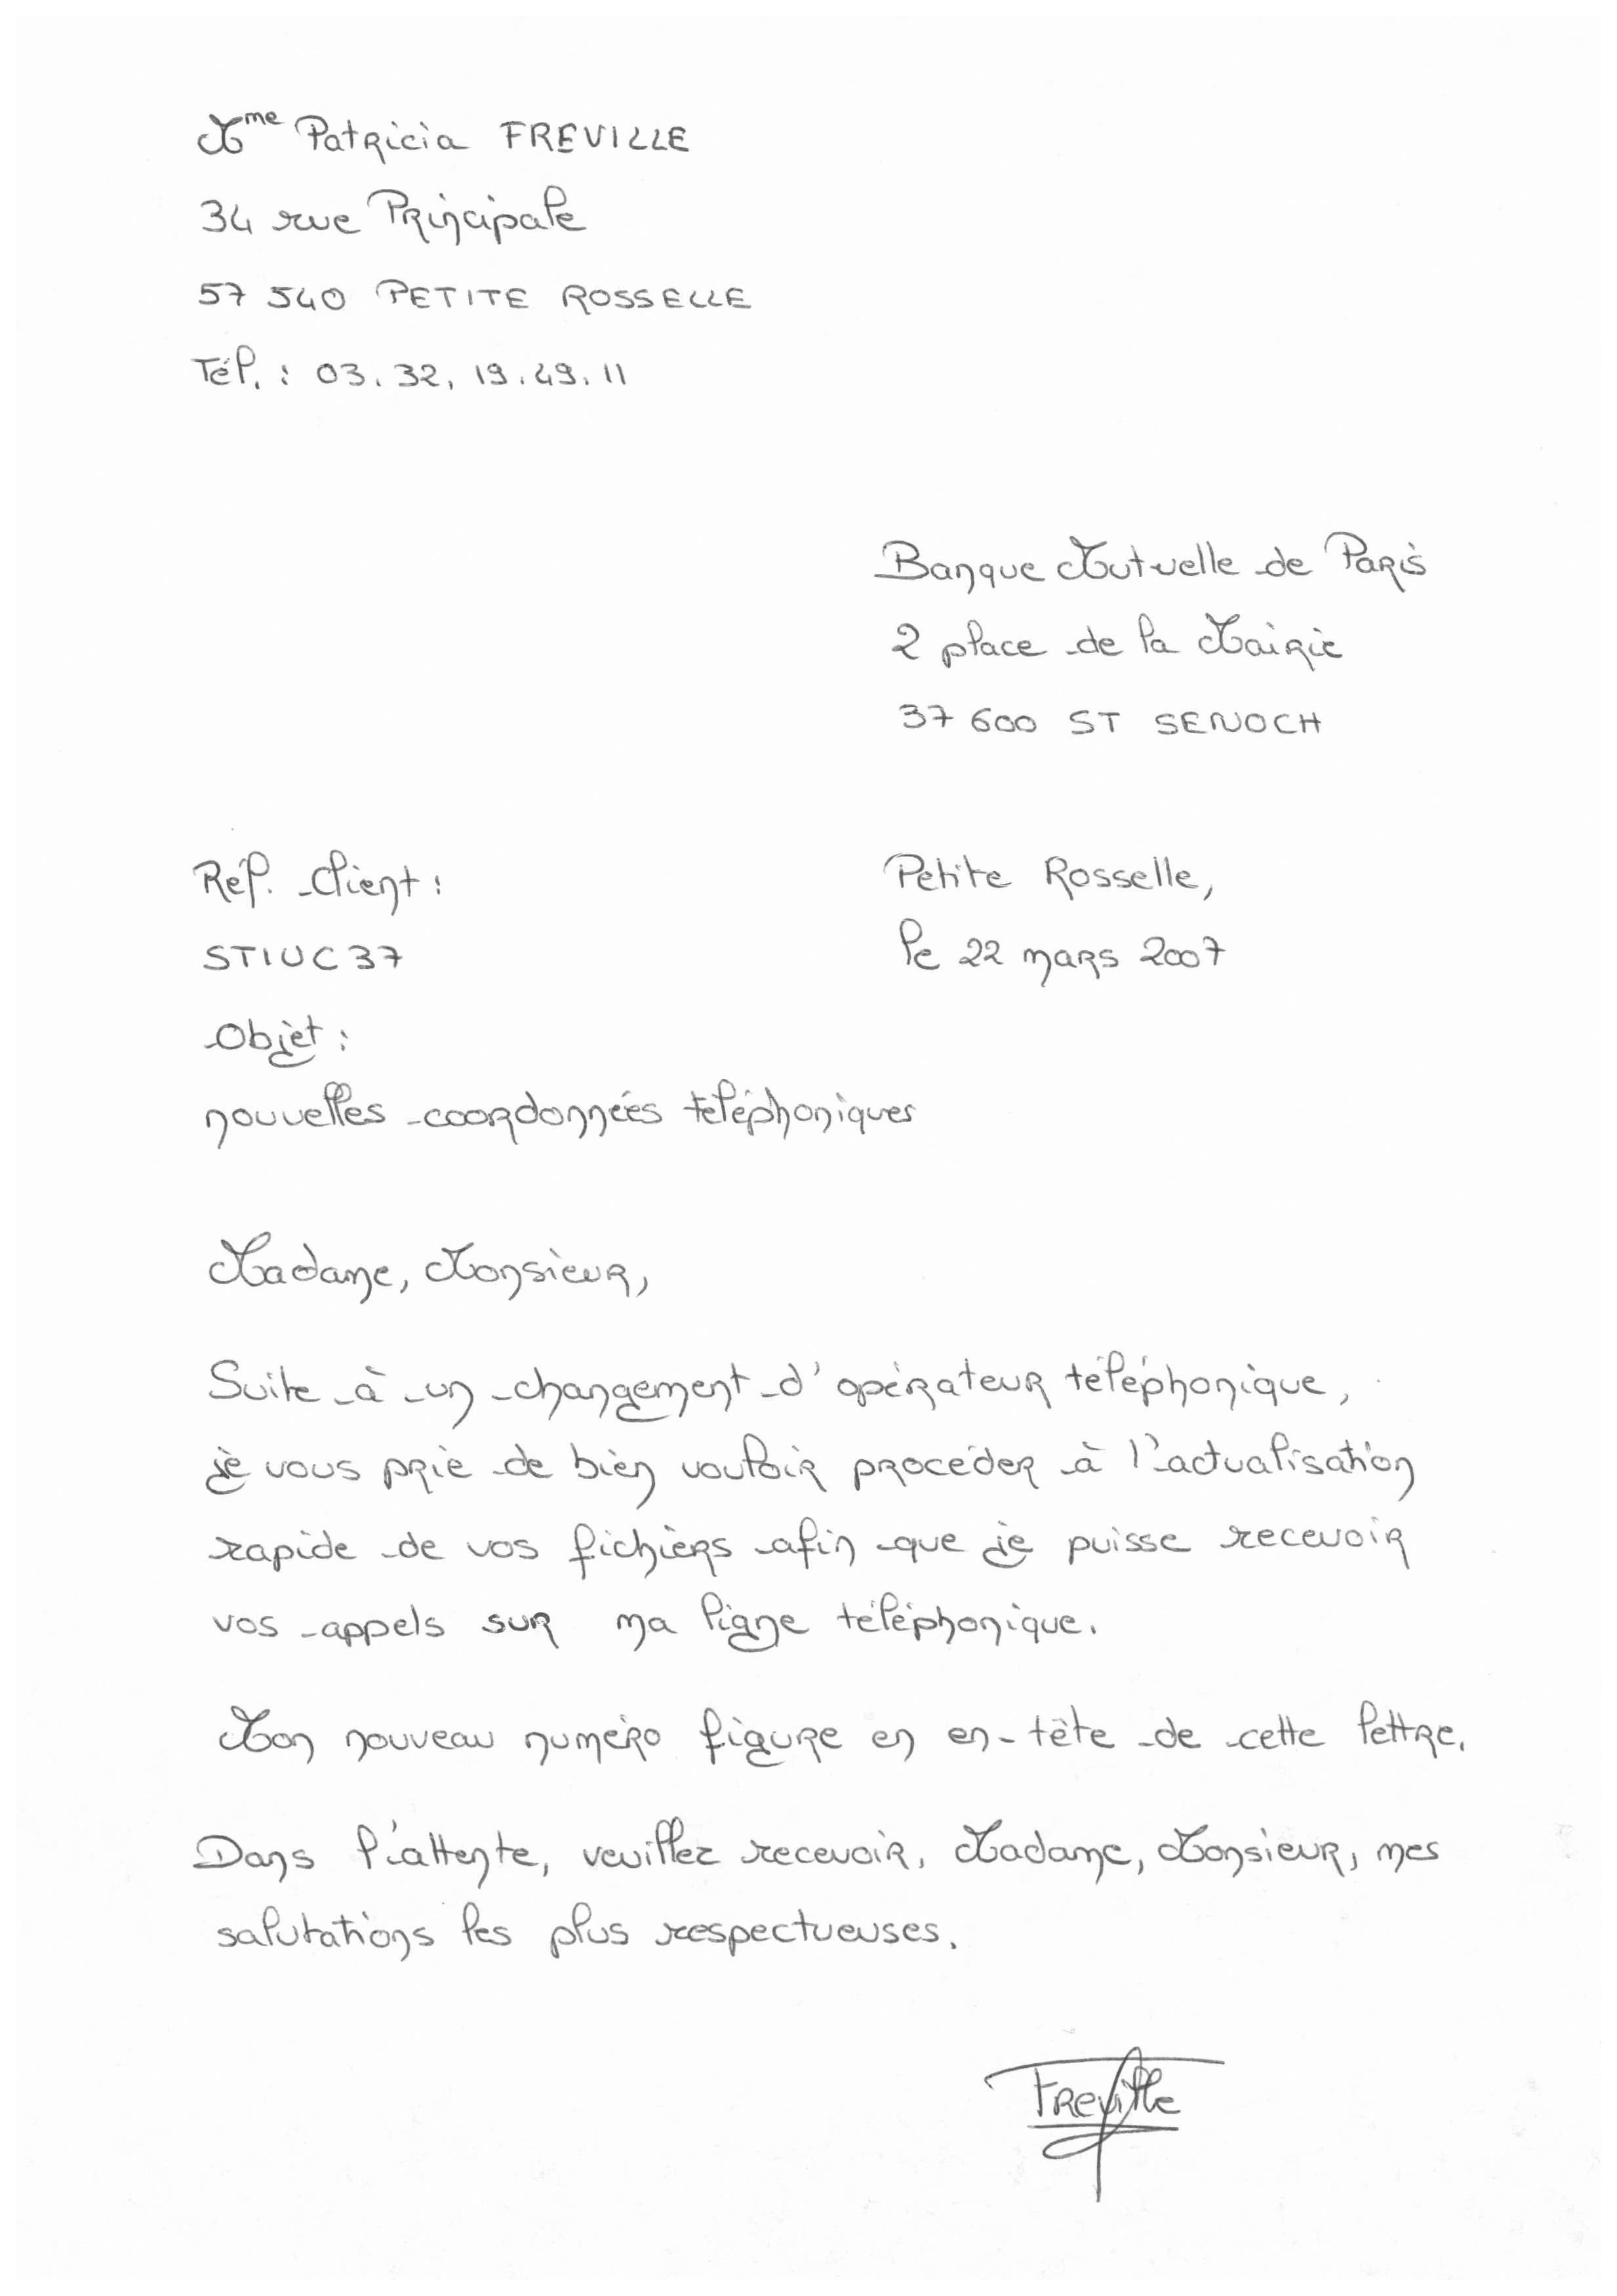 Mme Patricia FREVILLE
34 rue Principale
57 540 PETITE ROSSELLE
Tél. : 03. 32. 19. 49. 11
Banque Mutuelle de Paris
2 place de la Mairie
37 600 ST SENOCH
Réf. Client :
STIUC37
Petite Rosselle,
le 22 mars 2007
Objet :
nouvelles coordonnées téléphoniques
Madame, Monsieur,
Suite à un changement d'opérateur téléphonique,
je vous prie de bien vouloir procéder à l'actualisation
rapide de vos fichiers afin que je puisse recevoir
vos appels sur ma ligne téléphonique.
Mon nouveau numéro figure en en-tête de cette lettre.
Dans l'attente, veuillez recevoir, Madame, Monsieur, mes
salutations les plus respectueuses.
Freville